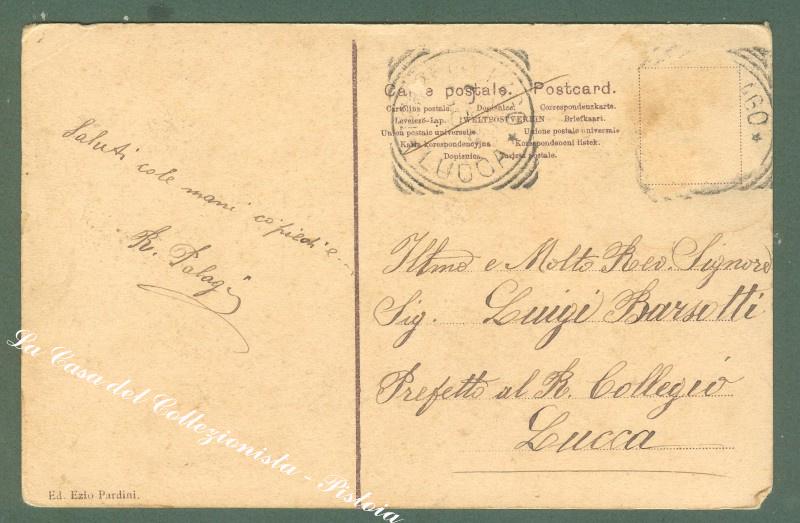 Carte postale. Postcard.
Cartolina postale. Dopisnice. Correspondenzkarte.
Levelező-Lap. WELTPOSTVEREIN Briefkaart.
Union postale universelle Unione postale universale
Karta korespondencyjna Korespondenční lístek.
Dopisnica. postale.
LUCCA *
GO *
Saluti cole mani co' piedi e....
R. Palagi
Illmo e Molto Rev. Signore
Sig. Luigi Barsotti
Prefetto al R. Collegio
Lucca
Ed. Ezio Pardini.
La Casa del Collezionista - Pistoia